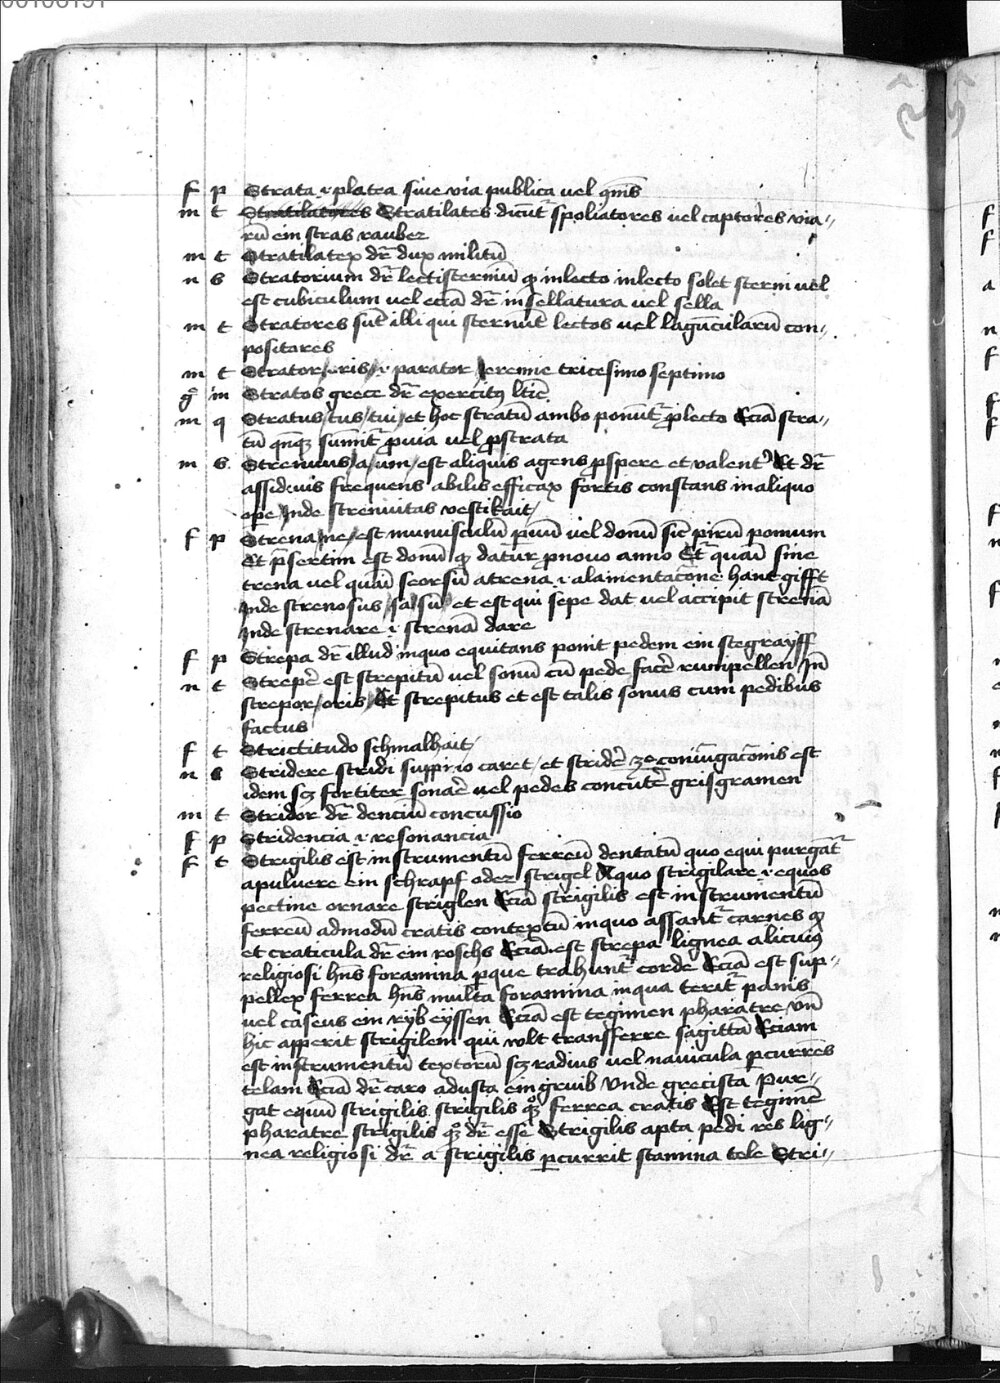 f p Strata .i. platea siue via publica uel qmis
m t Stratilates Stratilates dicūt᷑ spoliatores uel captores via⸗
rū ein stras rauber
m t Stratilatex dr̄ dux militū
n s Stratorium dr̄ lectisterniū qd inlecto inlecto solet sterni uel
est cubiculum uel eciā dr̄ insellatura uel sella
m t Stratores sūt illi qui sternūt lectos uel lagūcularū con⸗
positores
m t Strator/oris/.i. parator Jeremie tricesimo septimo
g̊ m Stratos grece dr̄ exercitꝯ
m q Stratus/tus/tui/et hoc stratū ambo ponūt᷑ ꝓ lecto Eciā stra⸗
tū qn̄qꝫ sumit᷑ ꝓ via uel ꝓstrata
m s Strenuus/a/um/est aliquis agens ꝓspere et valent᷑ Et dr̄
assiduus frequens abilis efficax fortis constans in aliquo
ope Jnde strenuitas vestikait/
f p Strena/ne/est munusculū puū uel donū sic pirū pomum
Et p̄sertim est donū qd datur ꝓ nouo anno Et᷑ quasi sine
trena uel quasi seorsū a trena .i. alamentac̄one hant gifft
Jnde strenosus/sa/sū/et est qui sepe dat uel accipit strenā
Jnde strenare .i. strenā dare
f p Strepa dr̄ illud inquo equitans ponit pedem ein stegrayff
n t Strepe᷑ est strepitū uel sonū cū pede face᷑ rumpellen Jn̄
strepor/oris/Et strepitus et est talis sonus cum pedibus
factus
f t Strictitudo schmalhait/
n s Stridere stridi suppino caret/et stride᷑ 2e coniugac̄onis est
idem sꝫ fortiter sonare uel pedes concute᷑ grisgramen
m t Stridor dr̄ dencium concussio
f p Stridencia .i. resonancia
f t Strigilis est instrumentū ferreū dentatū quo equi purgāt᷑
a puluere ein schrapf oder strigel A quo strigilare .i. equos
pectine ornare striglen Eciā strigilis est instrumentū
ferreū admodū cratis contextū inquo assant᷑ carnes qd
et craticula dr̄ ein roschs Eciā est strepa lignea alicuiꝯ
religiosi hn̄s foramina ꝑ que trahunt᷑ corde Eciā est sup⸗
pellex ferrea hn̄s multa foramina inqua terit᷑ panis
uel caseus ein ryb eyssen Eciā est tegimen pharatre vn̄
hic apperit strigilem qui volt transferre sagittā Eciam
est instrumentū textorū sꝫ radius uel nauicula ꝑcurrēs
telam Eciā dr̄ caro adusta ein gruib Vnde grecista Pur⸗
gat equū strigilis strigilis qꝫ ferrea cratis Est tegimē
pharatre strigilis qꝫ dr̄ esse Strigilis apta pedi res lig⸗
nea religiosi dr̄ a strigilis ꝑcurrit stamina tele Stri⸗